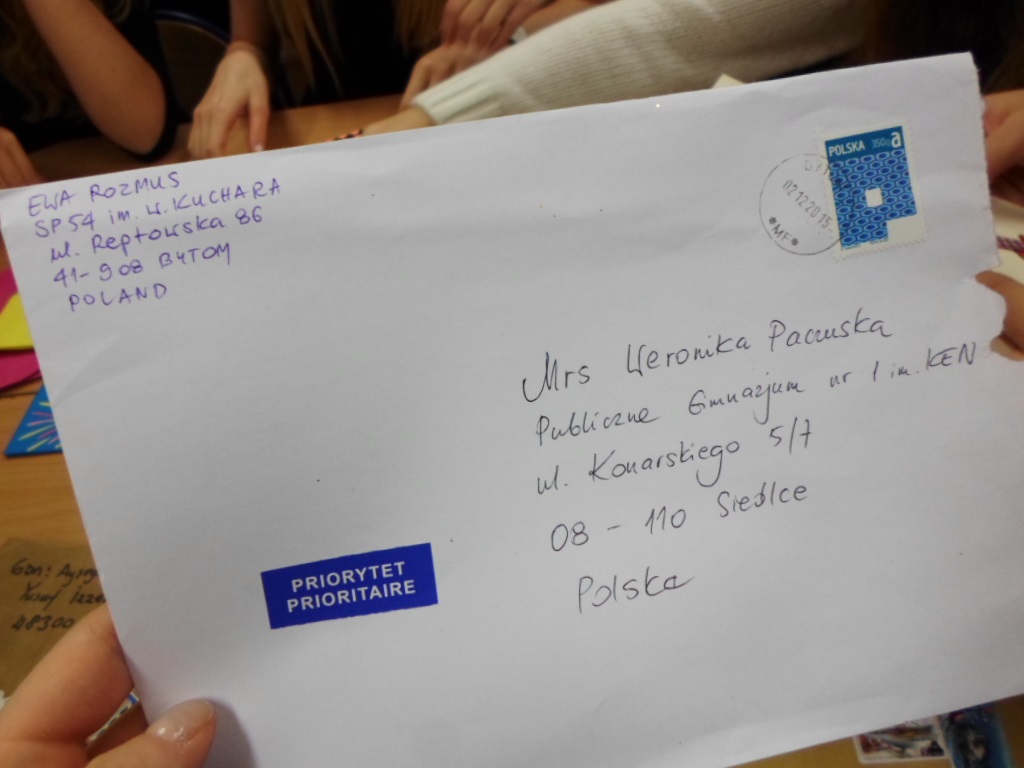 EWA ROZMUS
SP54 im. W. KUCHARA
ul. Reptowska 86
41-908 BYTOM
POLAND
POLSKA 350g a
02.12.2015
*MF*
Mrs Weronika Paczuska
Publiczne Gimnazjum nr 1 im. KEN
ul. Konarskiego 5/7
08-110 Siedlce
Polska
PRIORYTET
PRIORITAIRE
Gön:
48300